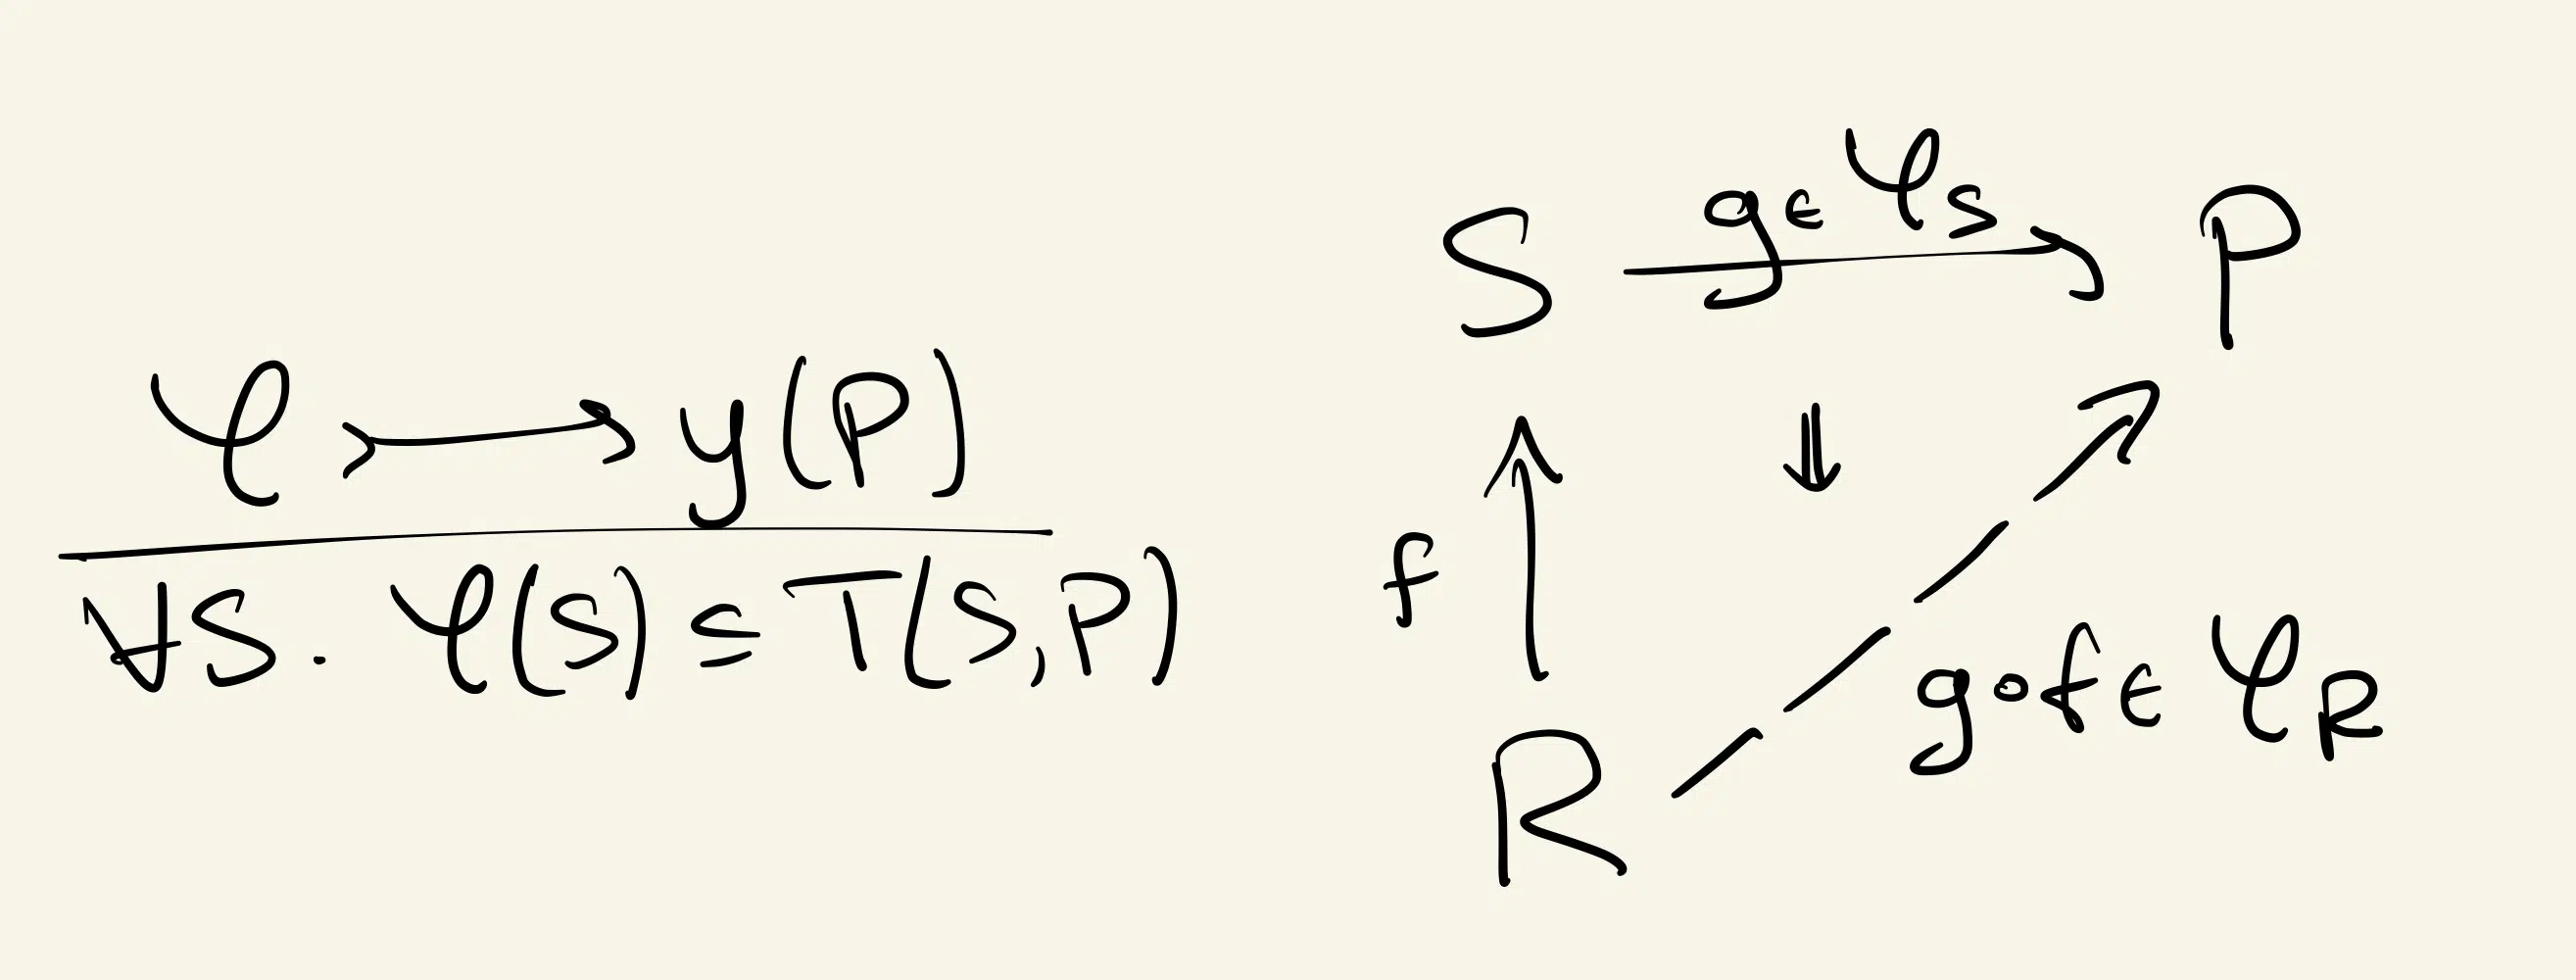 φ ↣ y(P)
∀S. φ(S) ⊆ T(S,P)
S g∈φ_S P
⇓
f
g∘f∈φ_R
R